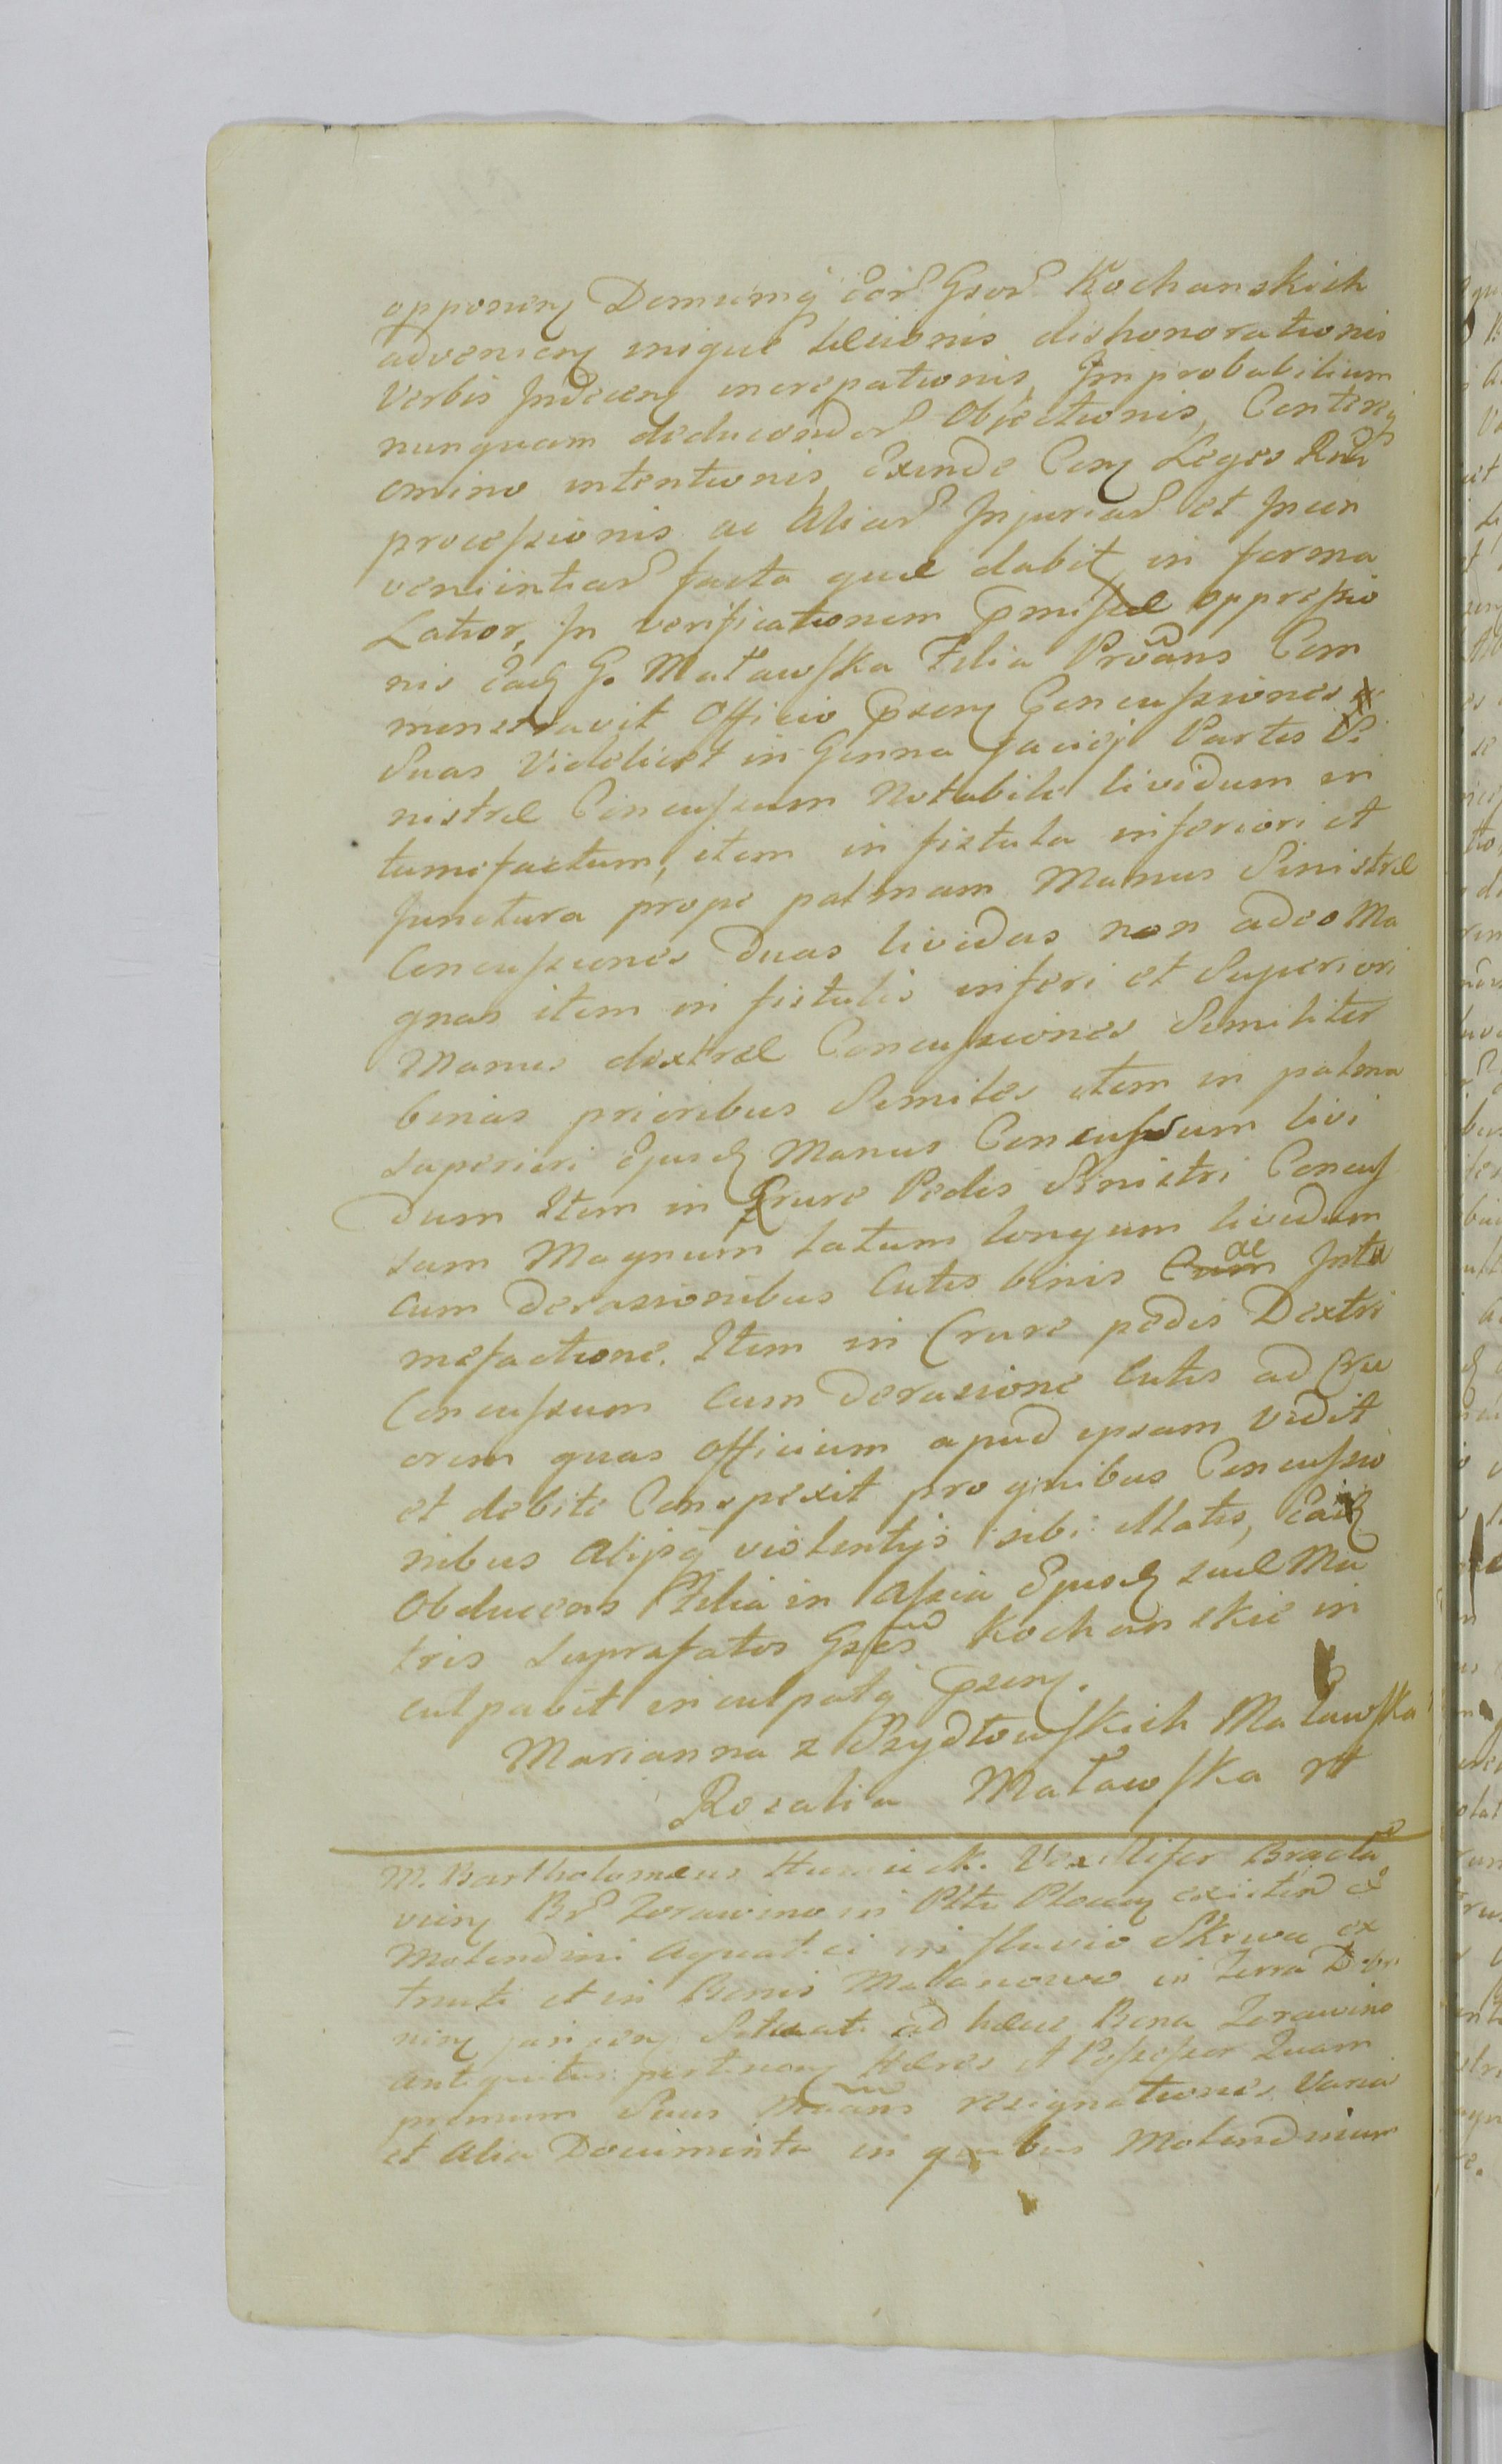 opponen Domumq̃ eor Gsor Kochanskich
advenien inique læsionis dishonorationis
Verbis Indecen increpationis, Improbabilium
nunquam deducendor Objectionis, Conteren
omino intentionis Exinde Con Leges Rñi
processionis ac Aliar Injuriar et Incon
venientiar facta quæ dabit in forma
Latior, In verificationem Pmissæ oppressio
nis Ead G. Matawska Filia Protans Com
monstravit Officio Psen Concussiones
Suas Videlicet in Genna faciej Partis Si
nistræ Concussum Notabile lividum in
tumefactum, item in fistula inferiori et
Junctura prope palmam Manus Sinistræ
Concussiones Duas lividas non adeo Ma
gnas item in fistulis inferi et Superiori
Manus dextræ Concussiones Similiter
binas prioribus Similes item in palma
superiori Ejusd Manus Concussum livi
dum Item in Crure Pedis Sinistri Concus
sum Magnum latum longum lividum
cum Derasionibus Cutis binis ac Intu
mefactione. Item in Crure pedis Dextri
Concussum Cum Derasione Cutis ad Cru
orem quas Officium apud ipsam Vidit
et debite Conspexit pro quibus Concussio
nibus Alijsq̃ violentijs sibi illatis, Ead
Obducens Filia in Assia Ejusd suæ Ma
tris Suprafatos Gses Kochanskie in
culpavit inculpatq̃ Psen.
Marianna z Szydłowskich Maławska
Rozalia Maławska
M. Bartholomæus Vexillifer Bracla
vien Br Zorawino in Pttu Plocen existen
Molendini Aquatici in fluvio Skrwa ex
tructi et in Bonis Malanowo in Terra Dobri
nien jacen Situati ad hæc Bona Zorawino
antiquitus pertinen Hæres et Possessor Quam
primum Suus resignationes Varia
et Alia Documenta in quibus Molendinum